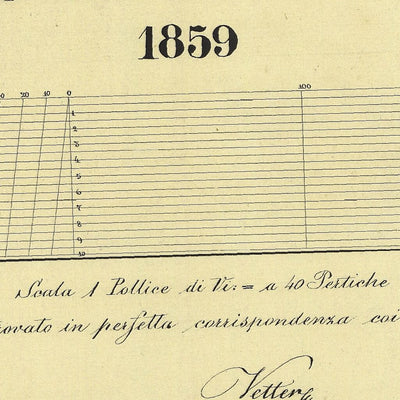 1859
20 10 0 100
1
2
3
4
5
6
7
8
9
10
Scala 1 Pollice di Vi: = a 40 Pertiche
rovato in perfetta corrispondenza coi
Vetter